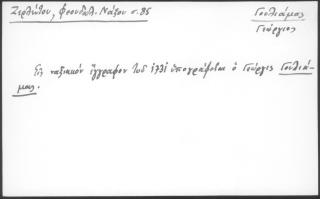 Ζερλέντου, Φεουδαλ. Νάξου σ. 85
Γουλιάμας
Γεώργιος
Εἰς ναξιακὸν ἔγγραφον τοῦ 1731 ὑπογράφεται ὁ Γεώργις Γουλιά-
μας.